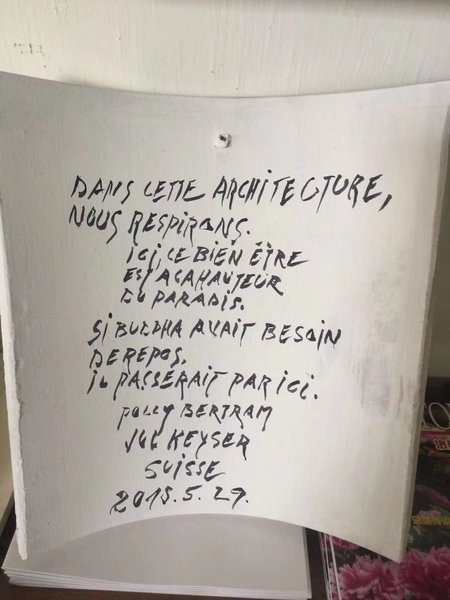 DANS CETTE ARCHITECTURE,
NOUS RESPIRONS.
ICI, CE BIEN ÊTRE
EST A LA HAUTEUR
DU PARADIS.
SI BUDDHA AVAIT BESOIN
DE REPOS,
IL PASSERAIT PAR ICI.
POLLY BERTRAM
KEYSER
SUISSE
2015.5.29.